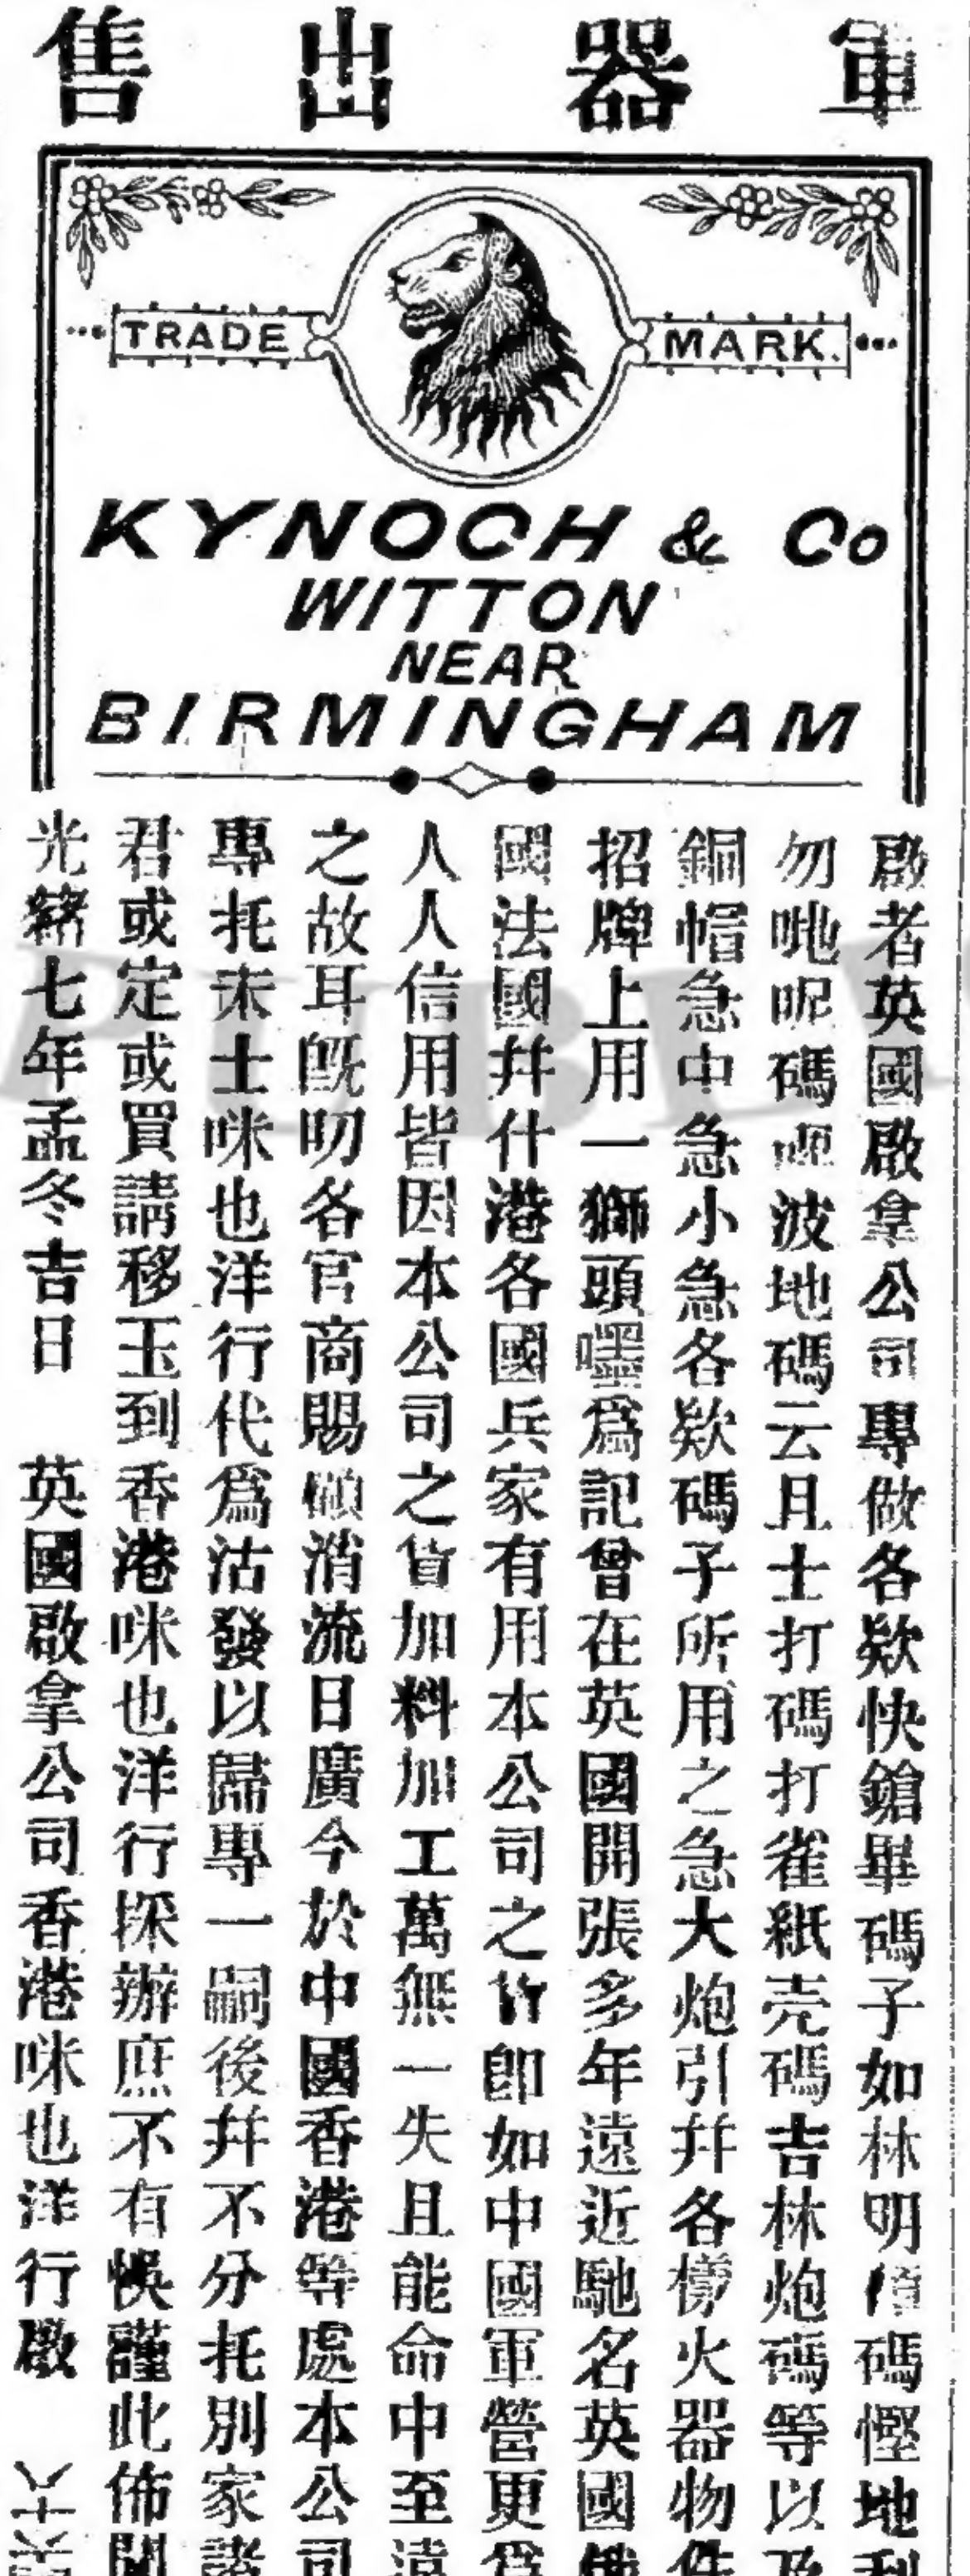 軍器出售
TRADE MARK.
KYNOCH & Co
WITTON
NEAR
BIRMINGHAM
啟者英國啟拿公司專做各欵快鎗畢碼子如林明碼慳地利
勿吔呢碼波地碼云且士打碼打雀紙壳碼吉林炮碼等以及
銅帽急中急小急各欵碼子所用之急大炮引幷各樣火器物件
招牌上用一獅頭嘿爲記曾在英國開張多年遠近馳名英國俄
國法國幷什港各國兵家有用本公司之貨卽如中國軍營更爲
人人信用皆因本公司之貨加料加工萬無一失且能命中至遠
之故耳旣叨各官商賜顧消流日廣今於中國香港等處本公司
專托未士咪也洋行代爲沽發以歸專一嗣後幷不分托別家諸
君或定或買請移玉到香港咪也洋行採辦庶不有悞謹此佈聞
光緒七年孟冬吉日 英國啟拿公司香港咪也洋行啟
PUBL